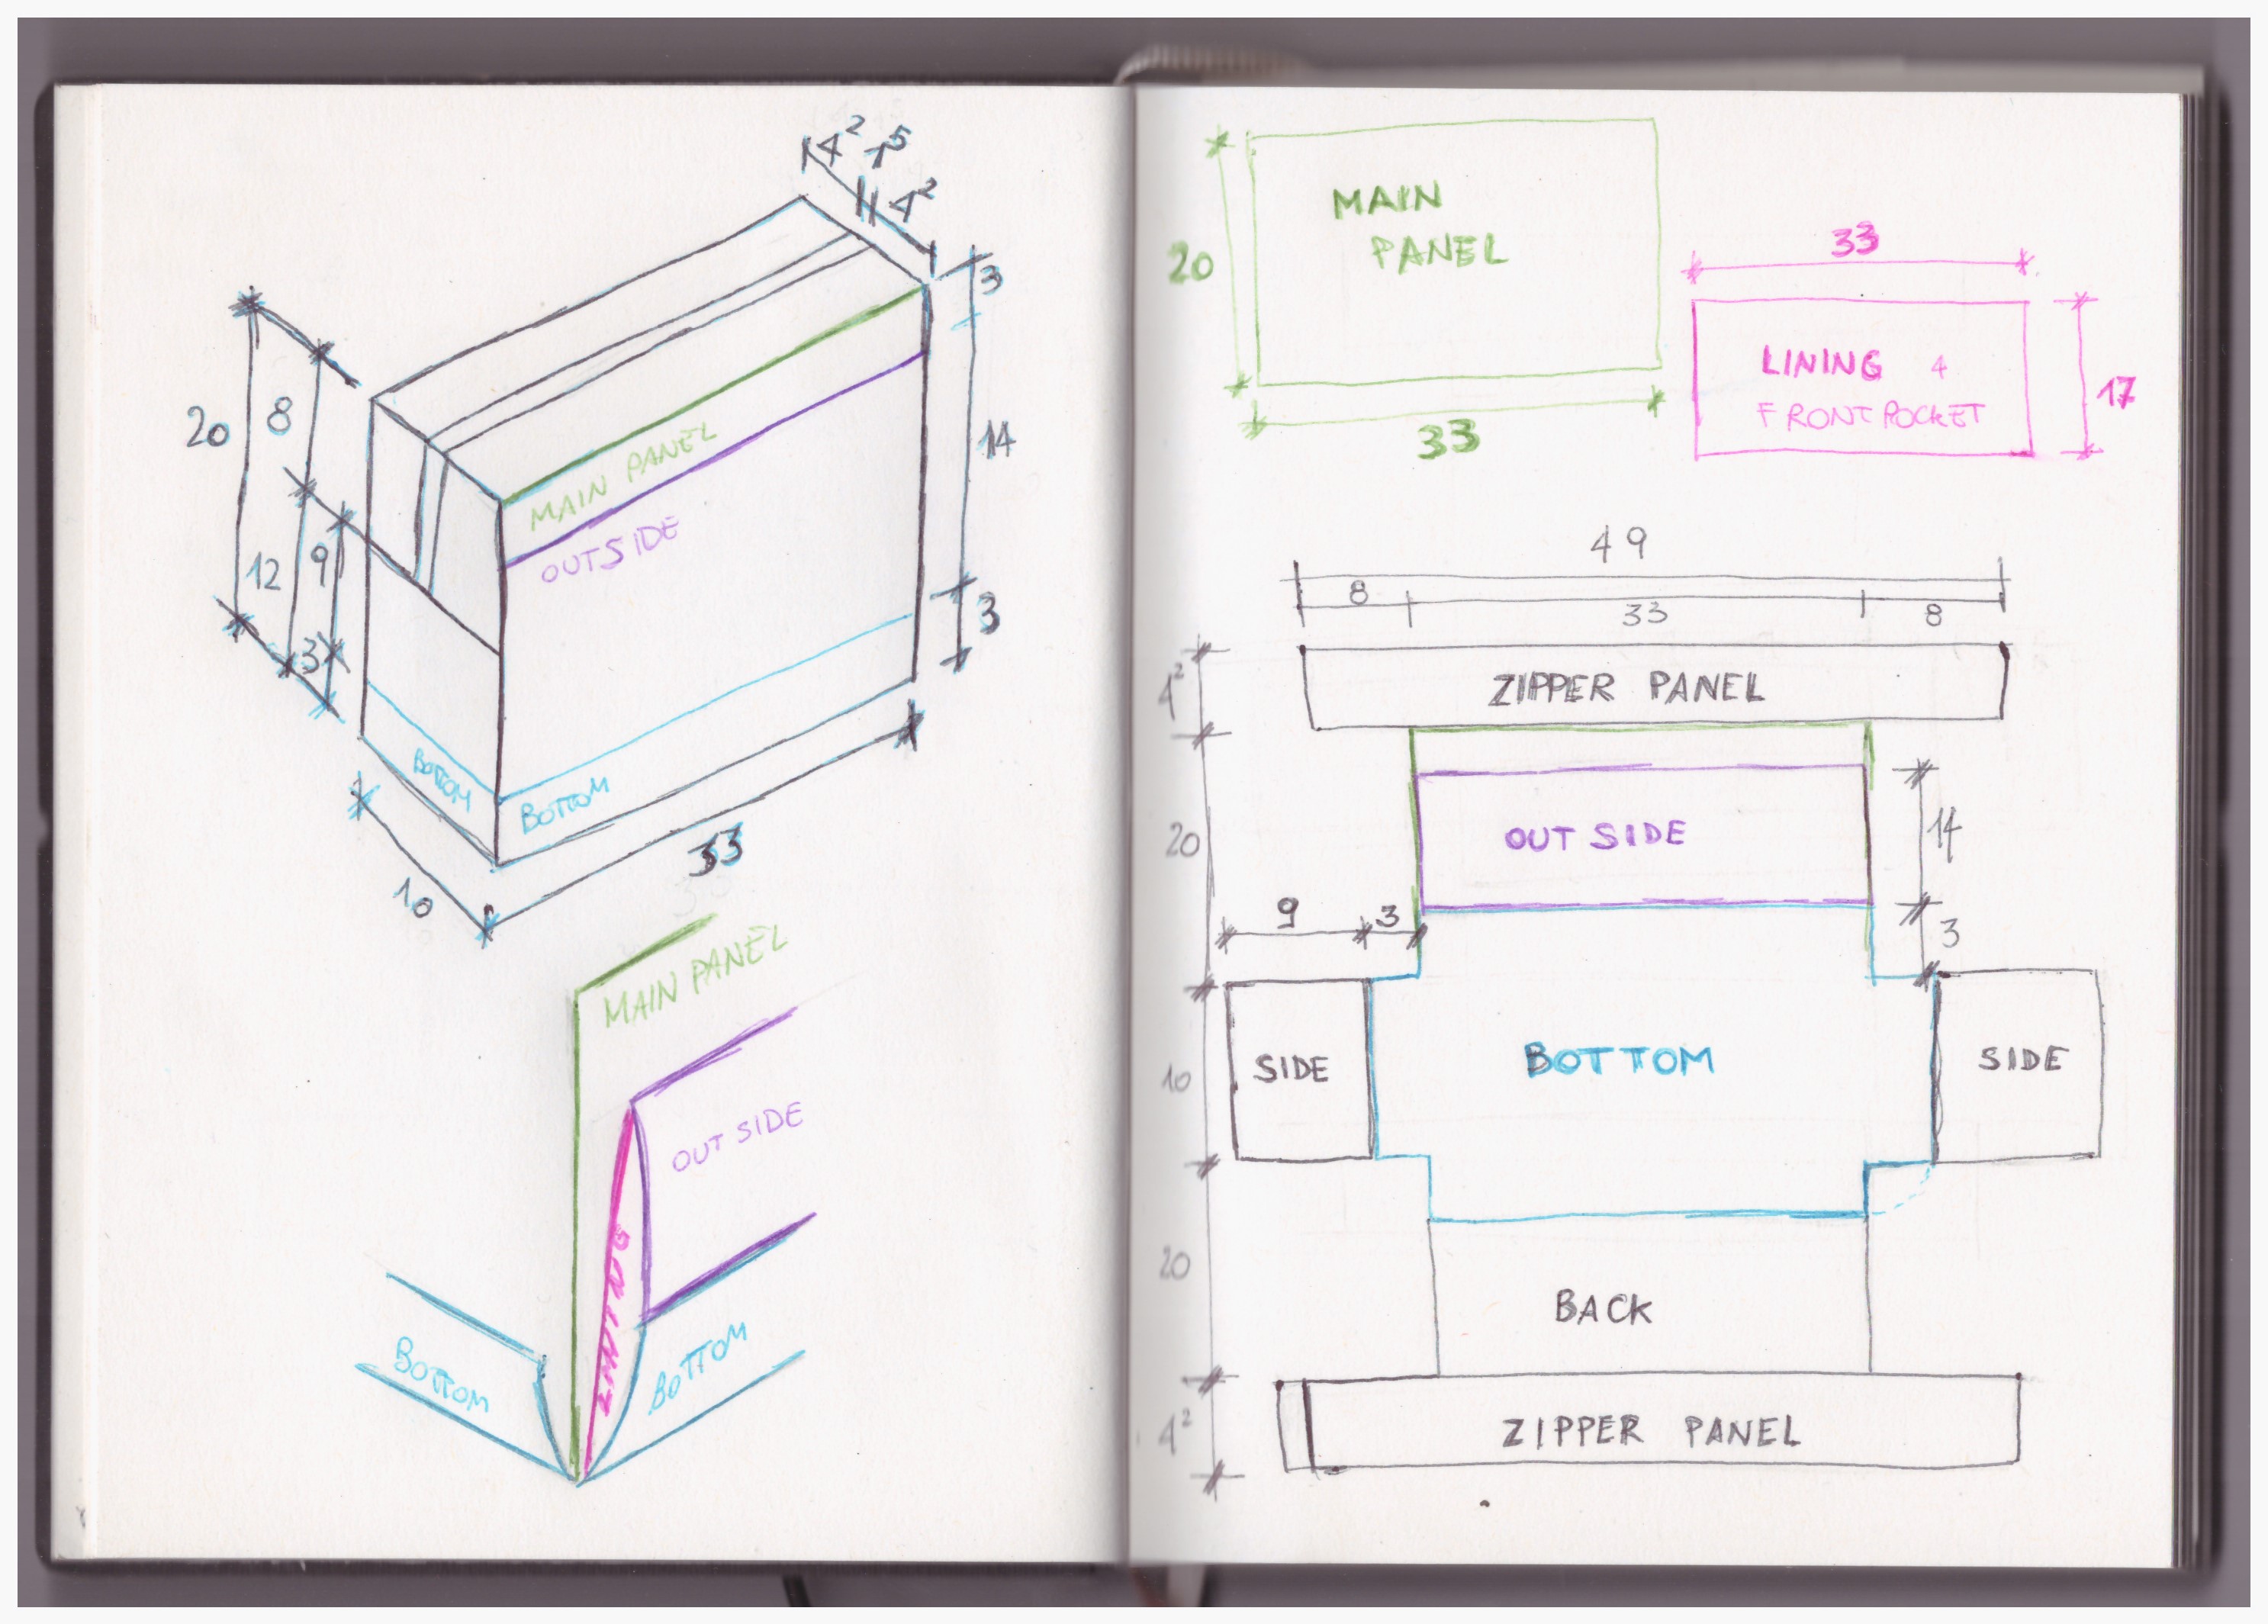 4² 1⁵
4²
3
20
8
14
MAIN PANEL
OUTSIDE
12
9
3
3
BOTTOM
BOTTOM
10
33
MAIN PANEL
OUT SIDE
LINING
BOTTOM
BOTTOM
MAIN
PANEL
20
33
33
LINING 4
FRONT POCKET
17
49
8
33
8
4²
ZIPPER PANEL
20
OUT SIDE
14
9
3
3
SIDE
BOTTOM
SIDE
10
20
BACK
4²
ZIPPER PANEL